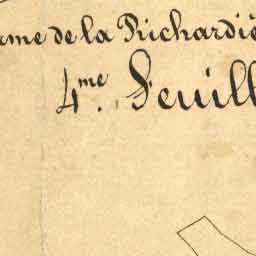 rme de la Richardiè
4.me Feuill